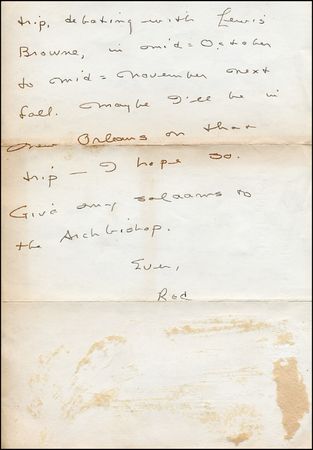 trip, debating with Lewis
Browne, in mid=October
to mid=november next
fall. Maybe I'll be in
new Orleans on that
trip — I hope so.
Give my salaams to
the Archbishop.
Ever,
Rod